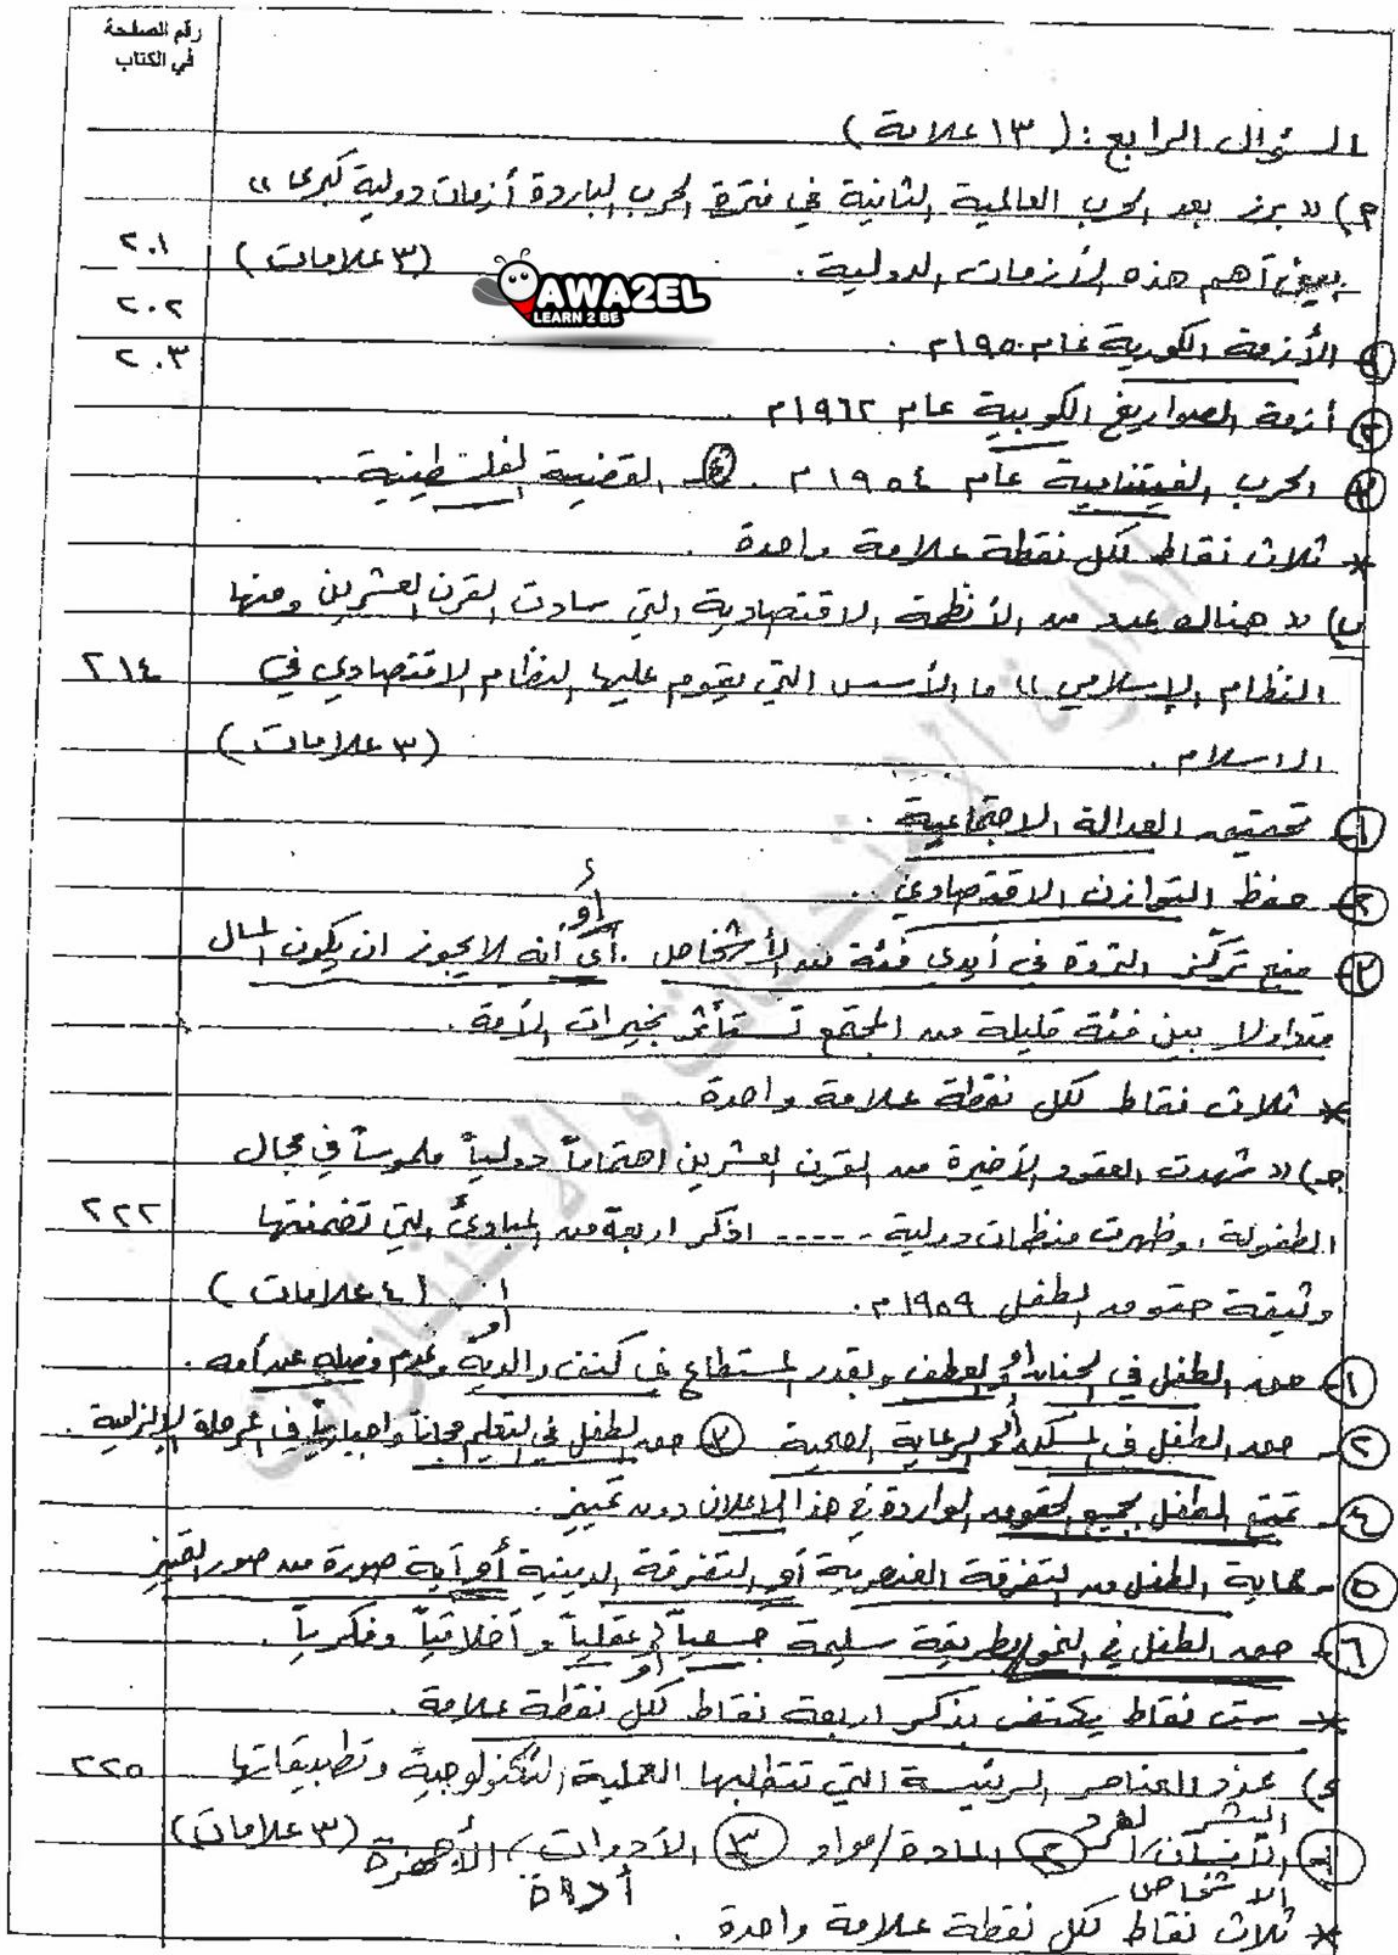 رقم الصفحة
في الكتاب
السؤال الرابع : ( ١٣ علامة )
٢) " برز بعد الحرب العالمية الثانية في فترة الحرب الباردة أزمات دولية كبرى "
بيّن أهم هذه الأزمات الدولية . ( ٣ علامات ) ٢٠١
AWA2EL
LEARN 2 BE
٢٠٢
١- الأزمة الكورية عام ١٩٥٠م . ٢٠٣
٢- أزمة الصواريخ الكوبية عام ١٩٦٢م
٣- الحرب الفيتنامية عام ١٩٥٤م . ٤- القضية الفلسطينية .
* ثلاث نقاط لكل نقطة علامة واحدة .
ب) " هناك عدد من الأنظمة الاقتصادية التي سادت القرن العشرين ومنها
النظام الإسلامي " ما الأسس التي يقوم عليها النظام الاقتصادي في ٢١٤
الاسلام . ( ٣ علامات )
١- تحقيق العدالة الاجتماعية .
٢- حفظ التوازن الاقتصادي .
أو
٣- منع تركّز الثروة في أيدي فئة من الأشخاص . أي أنه لا يجوز ان يكون المال
متداولا بين فئة قليلة من المجتمع تستأثر بخيرات الأمة .
* ثلاث نقاط لكل نقطة علامة واحدة .
جـ) " شهدت العقود الأخيرة من القرن العشرين اهتماماً دولياً ملموساً في مجال
الطفولة ، وظهرت منظمات دولية ----- اذكر اربعة من المبادئ التي تضمنتها ٢٢٢
وثيقة حقوق الطفل ١٩٥٩م . ( ٤ علامات )
أو
١- حق الطفل في الحنان أو العطف وبقدر المستطاع في كنف والديه وعدم فصله عن أمه .
٢- حق الطفل في المسكن الرعاية الصحية ٣- حق الطفل في التعليم مجاناً واجبارياً في المرحلة الإلزامية .
٤- تمتع الطفل بجميع الحقوق الواردة في هذا الاعلان دون تمييز .
٥- حماية الطفل من التفرقة العنصرية أو التفرقة الدينية أو أية صورة من صور التمييز
٦- حق الطفل في النمو بطريقة سليمة جسمياً وعقلياً و أخلاقياً وفكرياً .
أو
* ست نقاط يكتفى بذكر اربعة نقاط لكل نقطة علامة .
د) عدد العناصر الرئيسة التي تتطلبها العملية التكنولوجية وتطبيقاتها ٢٢٥
البشر
١- الانسان / ٢ المادة / مواد ٣ الأدوات ، الأجهزة ( ٣ علامات )
الاشخاص أداة
* ثلاث نقاط لكل نقطة علامة واحدة .
إدارة الامتحانات والاختبارات